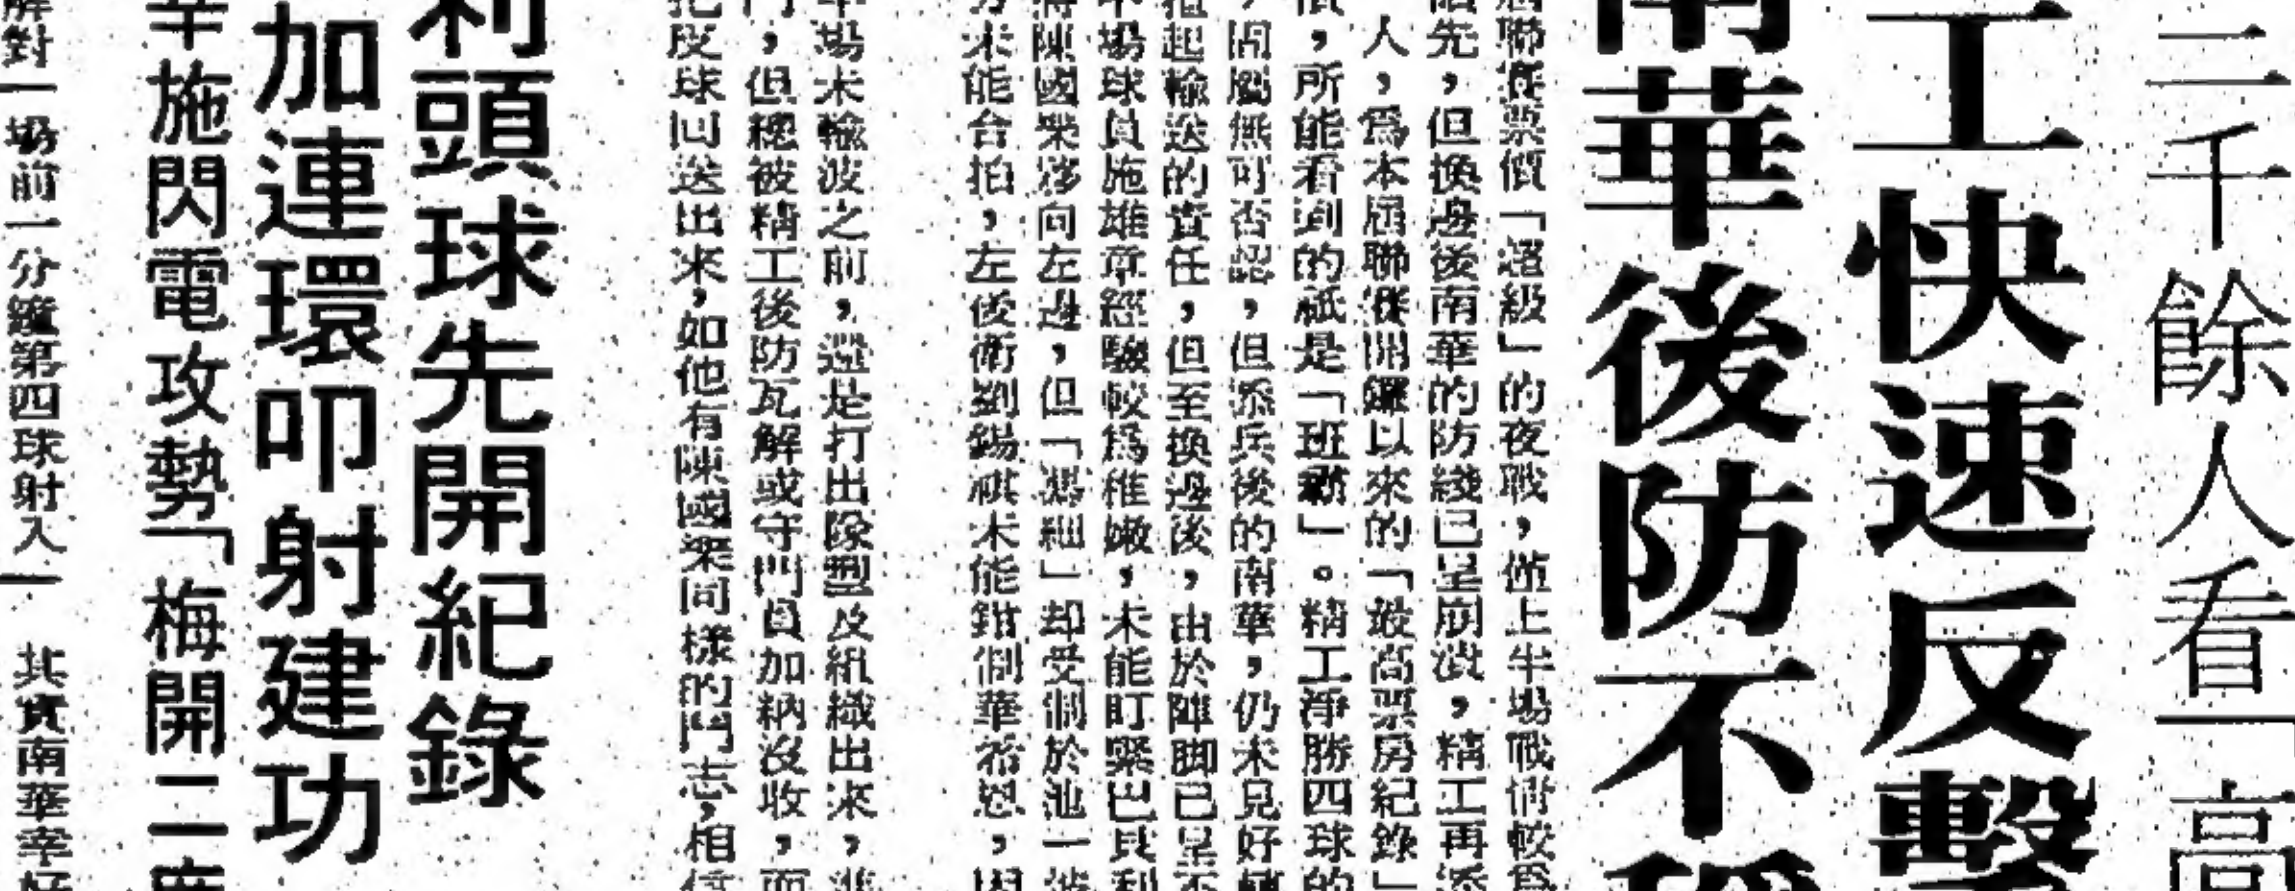 二千餘人看一高
工快速反擊
南華後防不穩
屆聯賽票價「超級」的夜戰，僅上半場戰情較爲
領先，但換邊後南華的防綫已呈崩潰，精工再添
人，爲本屆聯賽開鑼以來的「最高票房紀錄」
價，所能看到的祗是「班霸」。精工淨勝四球的
，固屬無可否認，但添兵後的南華，仍未見好轉
担起輸送的責任，但至換邊後，由於陣脚已呈不
本場球員施雄章經驗較爲稚嫩，未能盯緊巴貝利
將陳國樂移向左邊，但「馮細」却受制於池一波
方未能合拍，左後衛劉錫祺未能鉗制華希恩，因
本場未輸波之前，還是打出隊型及組織出來，準
門，但總被精工後防瓦解或守門員加納沒收，而
把皮球回送出來，如他有陳國樂同樣的鬥志，相信
利頭球先開紀錄
加連環叩射建功
幸施閃電攻勢「梅開二度
解對一場前一分鐘第四球射入— 其實南華幸好